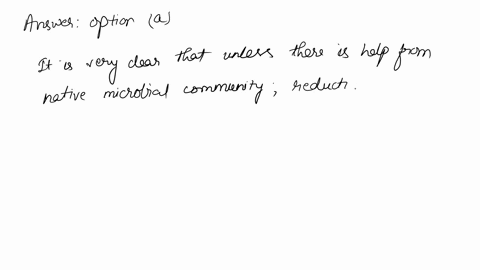 Answer: option (a)
It is very clear that unless there is help from
native microbial community; reducti.